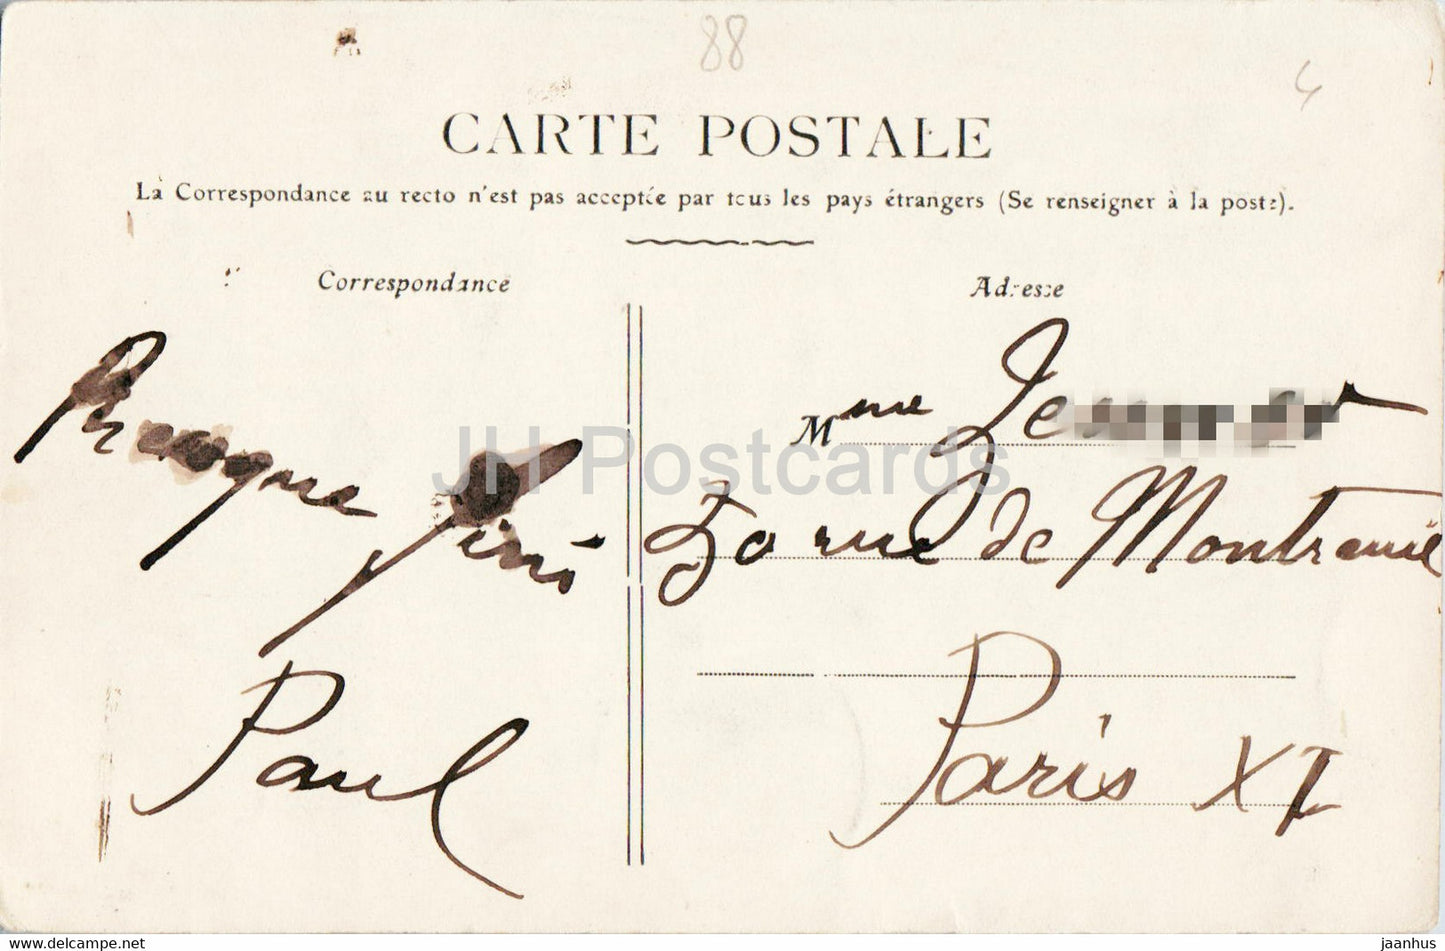 88
CARTE POSTALE
La Correspondance au recto n'est pas acceptée par tous les pays étrangers (Se renseigner à la poste).
Correspondance
Adresse
JH Postcards
Presque fini
Paul
Mme
50 rue de Montreuil
Paris XI
www.delcampe.net
jaanhus